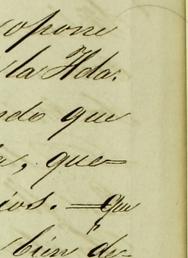 opone
la Hda.
ndo que
a, que=
ios. — Que
bien de-